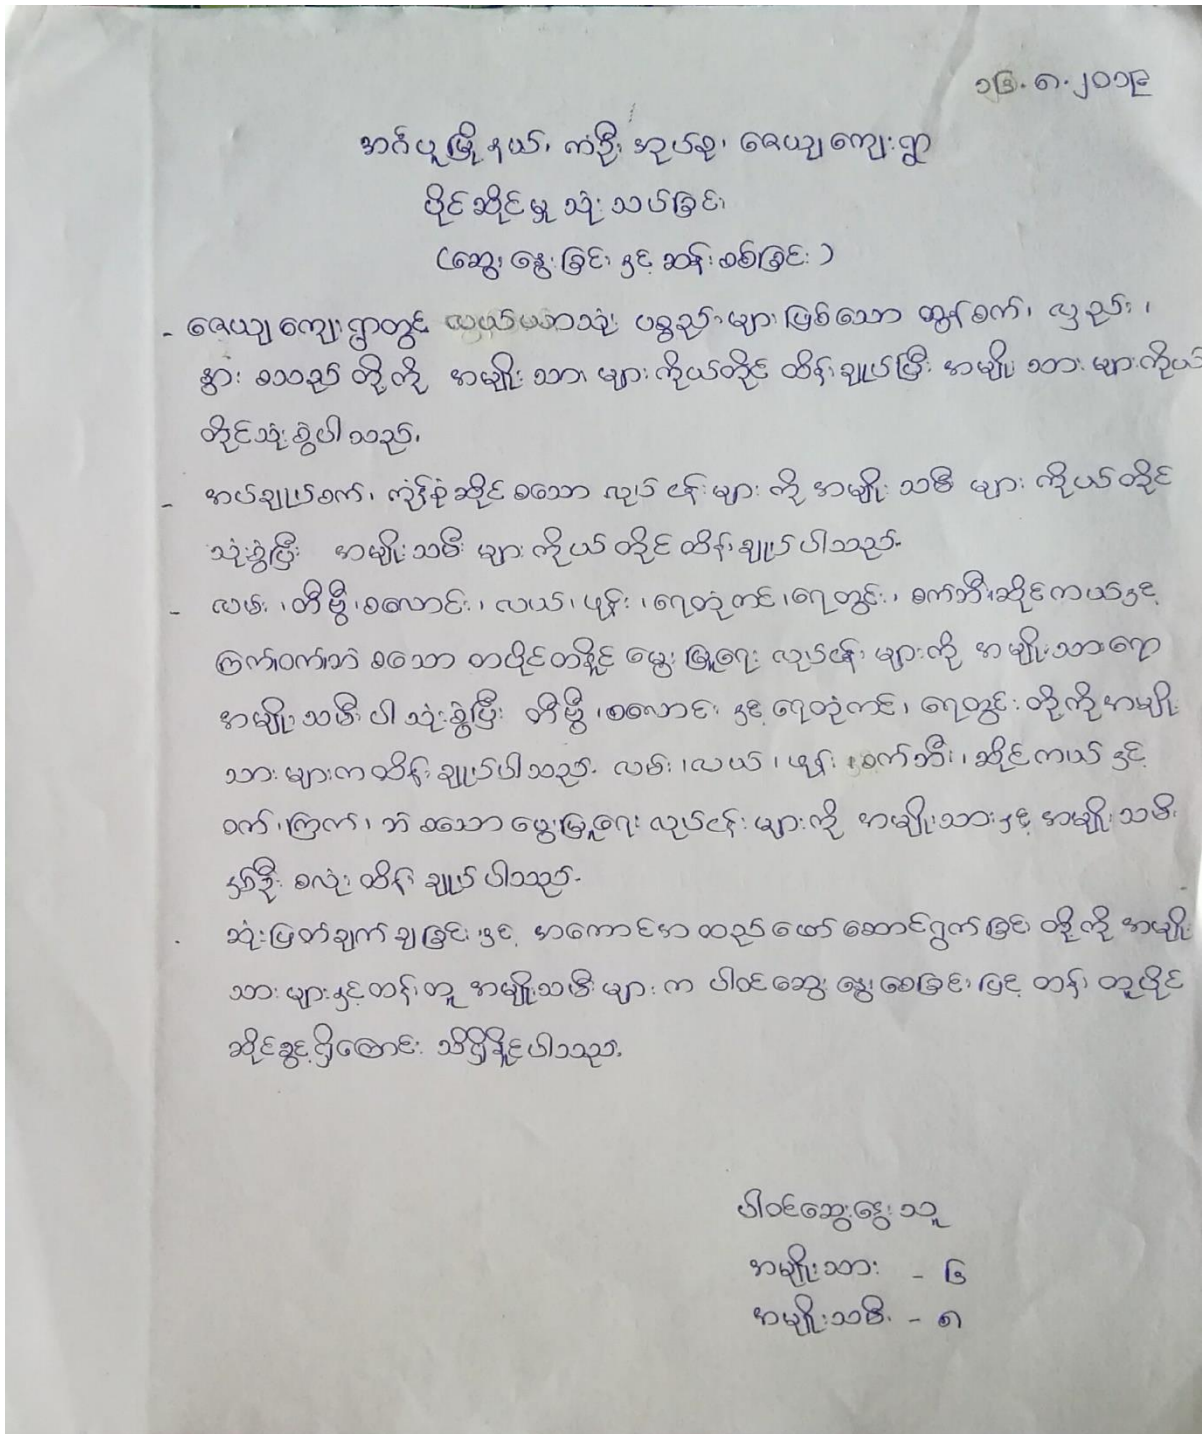 ၁၆.၈.၂၀၁၉
အင်္ဂပူမြို့နယ်၊ ကံဦး အုပ်စု၊ ဇေယျကျေးရွာ
ပိုင်ဆိုင်မှု သုံးသပ်ခြင်း
(ဆွေးနွေးခြင်းနှင့် ဆန်းစစ်ခြင်း)
- ဇေယျကျေးရွာတွင် လယ်ယာသုံး ပစ္စည်းများဖြစ်သော ထွန်စက်၊ လှည်း၊
နွား စသည်တို့ကို အမျိုးသားများကိုယ်တိုင် ထိန်းချုပ်ပြီး အမျိုးသားများကိုယ်
တိုင်သုံးစွဲပါသည်။
- အပ်ချုပ်စက်၊ ကုန်စုံဆိုင် စသော လုပ်ငန်းများကို အမျိုးသမီးများ ကိုယ်တိုင်
သုံးစွဲပြီး အမျိုးသမီးများကိုယ်တိုင် ထိန်းချုပ်ပါသည်။
- လမ်း၊ တီဗွီ၊ စလောင်း၊ လယ်၊ ဖုန်း၊ ရေတုံကင်၊ ရေတွင်း၊ စက်ဘီး၊ ဆိုင်ကယ်နှင့်
ကြက်၊ ဝက်၊ ဘဲ စသော တပိုင်တနိုင် မွေးမြူရေး လုပ်ငန်းများကို အမျိုးသားရော
အမျိုးသမီးပါ သုံးစွဲပြီး တီဗွီ၊ စလောင်းနှင့် ရေတုံကင်၊ ရေတွင်းတို့ကို အမျိုး
သားများက ထိန်းချုပ်ပါသည်။ လမ်း၊ လယ်၊ ဖုန်း၊ စက်ဘီး၊ ဆိုင်ကယ်နှင့်
ဝက်၊ ကြက်၊ ဘဲ စသော မွေးမြူရေး လုပ်ငန်းများကို အမျိုးသားနှင့် အမျိုးသမီး
နှစ်ဦးစလုံး ထိန်းချုပ်ပါသည်။
. ဆုံးဖြတ်ချက်ချခြင်းနှင့် အကောင်အထည်ဖော် ဆောင်ရွက်ခြင်းတို့ကို အမျိုး
သားများနှင့်တန်းတူ အမျိုးသမီးများက ပါဝင်ဆွေးနွေးစေခြင်းဖြင့် တန်းတူပိုင်
ဆိုင်ခွင့်ရှိကြောင်း သိရှိနိုင်ပါသည်။
ပါဝင်ဆွေးနွေးသူ
အမျိုးသား - ၆
အမျိုးသမီး - ၈